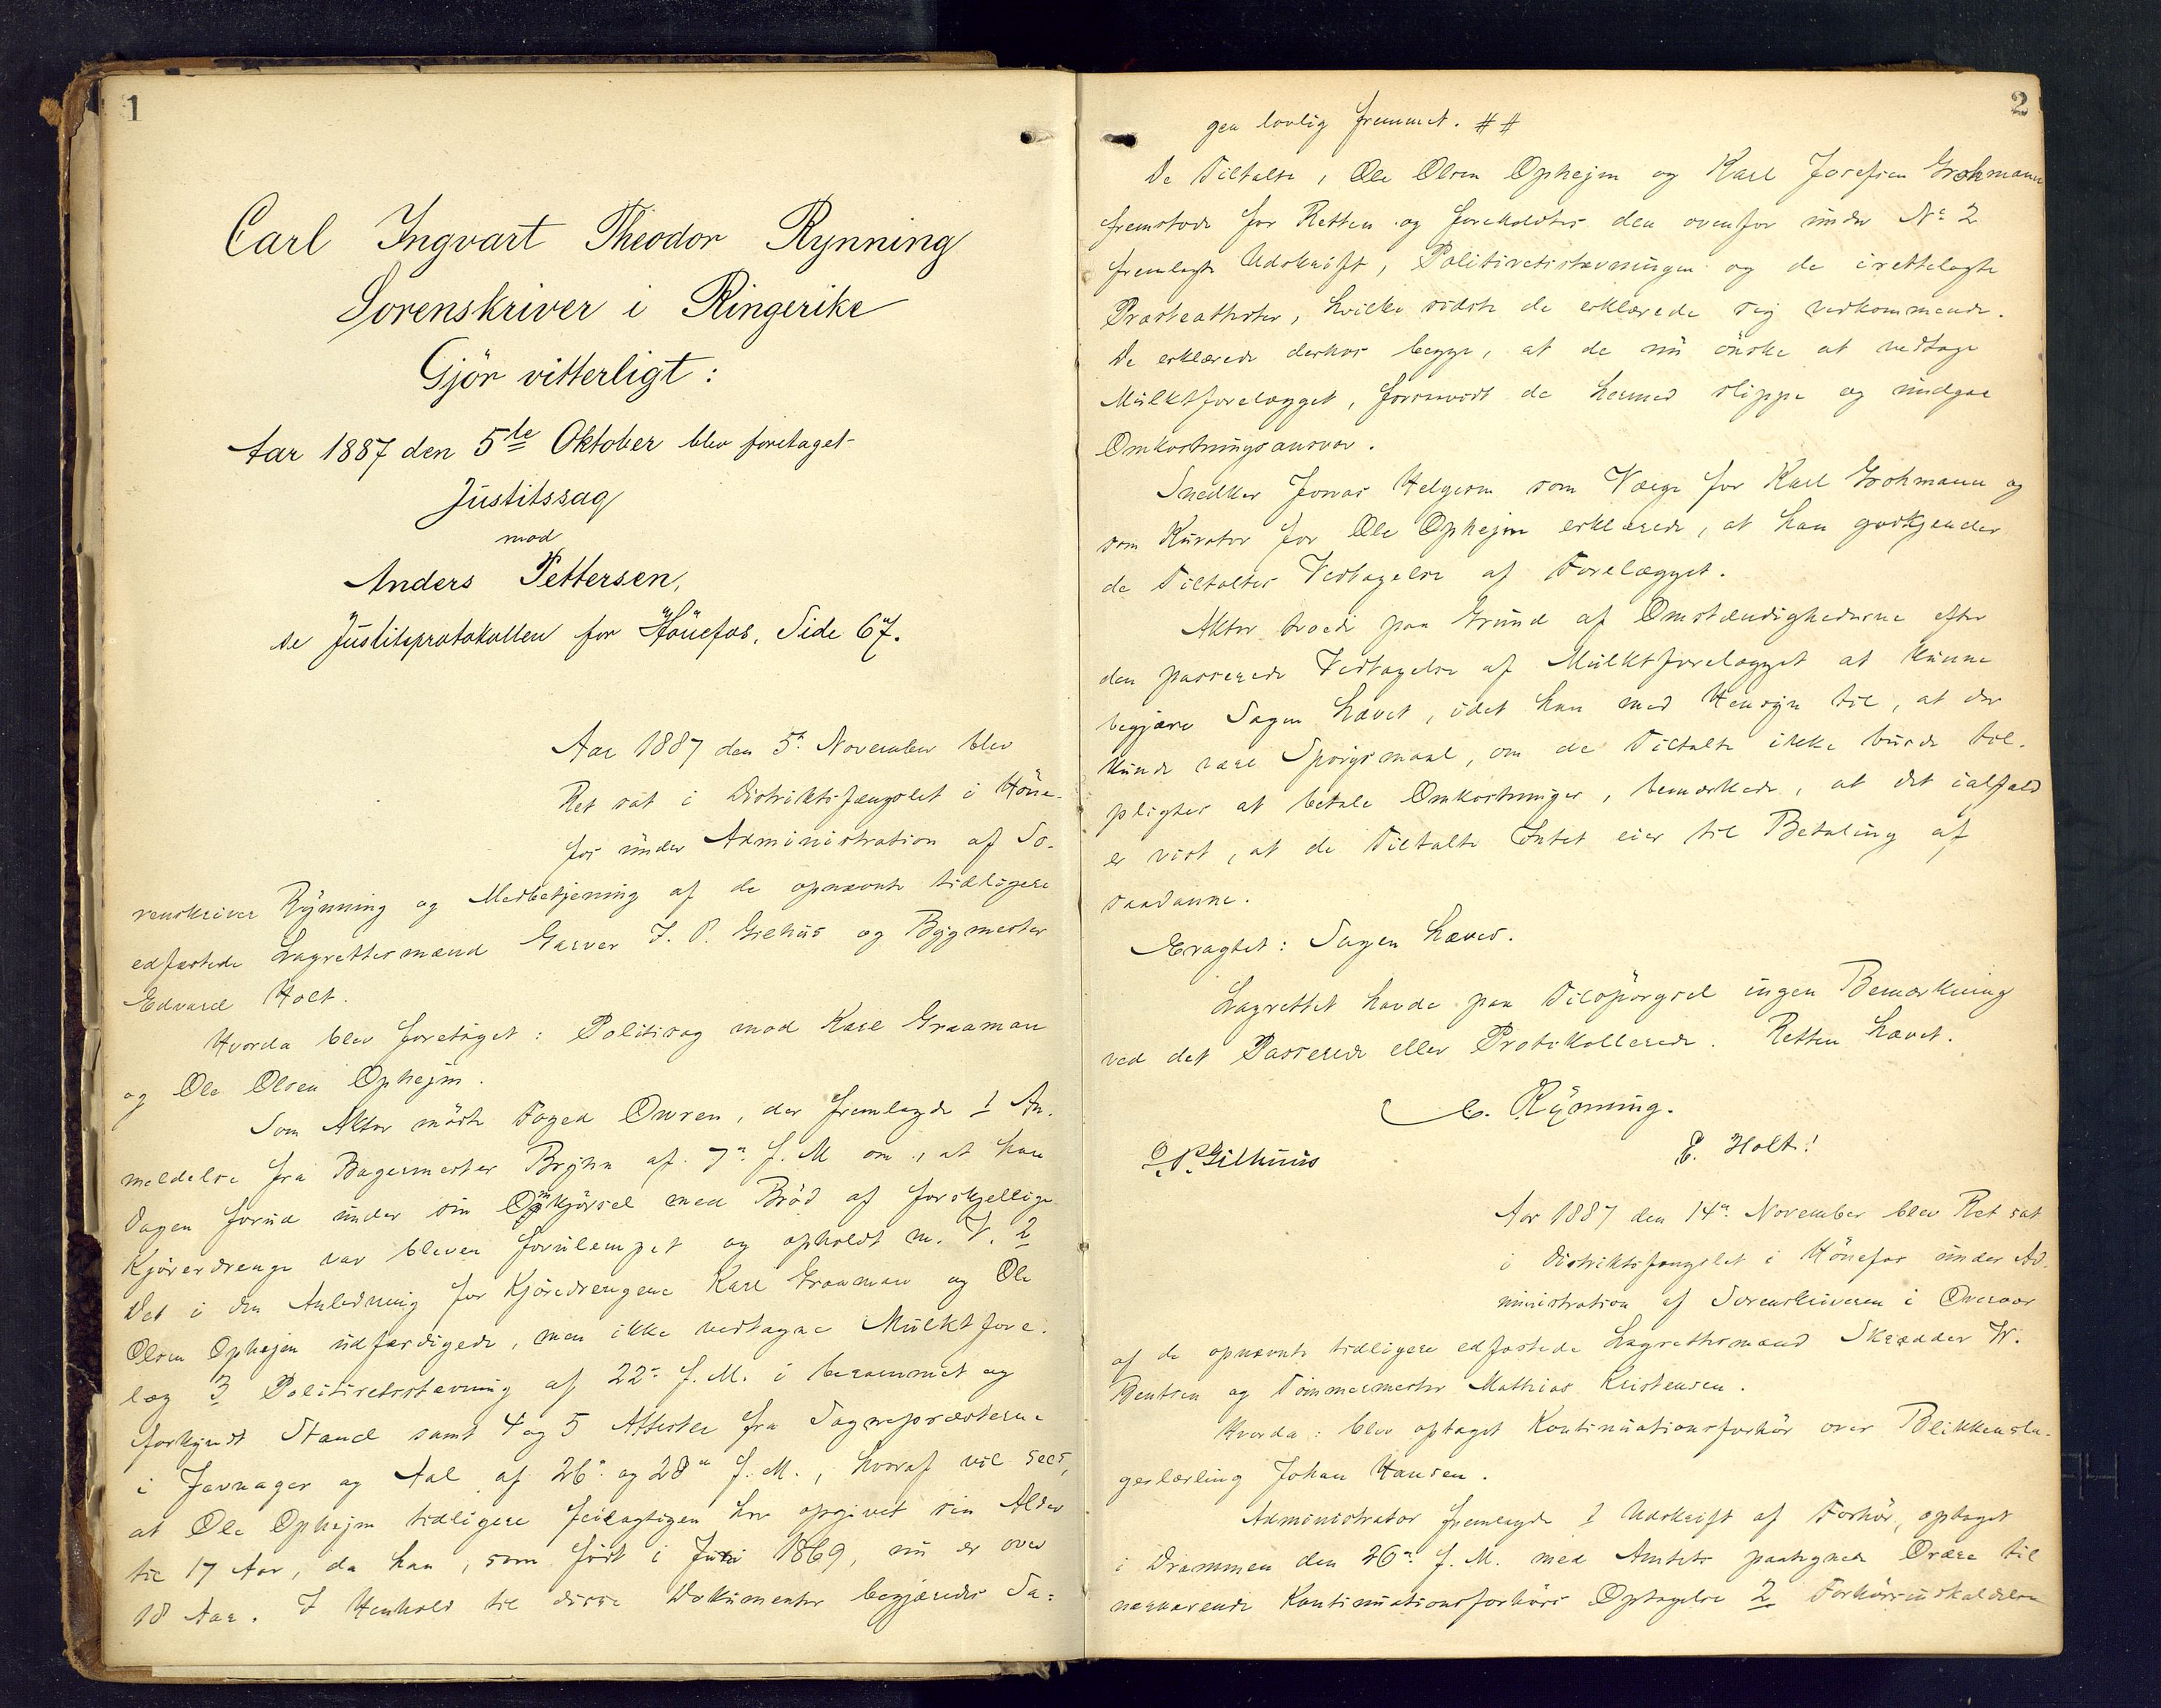 1
Carl Ingvart Theodor Rynning
Sorenskriver i Ringerike
Gjör vitterligt:
Aar 1887 den 5te Oktober blev foretaget
Justitssag
mod
Anders Pettersen,
se Justitsprotokollen for Hönefos, Side 67.
Aar 1887 den 5te November blev
Ret sat i Distriktsfængslet i Höne-
fos under Administration af So-
renskriver Rynning og Medbetjening af de opnævnte tidligere
edfæstede Lagrettesmænd Garver J. P. Gilhus og Bygmester
Edvard Holt.
Hvorda blev foretaget: Politisag mod Karl Graaman
og Ole Olsen Ophejm.
Som Aktor mödte Foged Owren, der fremlagde 1 An-
meldelse fra Bagermester Brÿhn af 7de f. M. om, at han
Dagen forud under sin Omkjörsel med Bröd af forskjellige
Kjörerdrenge var bleven forulempet og opholdt m. V. 2
Det i den Anledning for Kjöredrengene Karl Graaman og Ole
Olsen Ophejm udfærdigede, men ikke vedtagne Mulktfore-
læg 3 Politiretsstævning af 22de f. M. i berammet og
forkyndt Stand samt 4 og 5 Attester fra Sognepræsterne
i Jevnager og Aal af 26de og 28de f. M., hvoraf vil sees,
at Ole Ophejm tidligere feilagtigen har opgivet sin Alder
til 17 Aar, da han, som födt i Juni 1869, nu er over
18 Aar. I Henhold til disse Dokumenter begjæredes Sa=
2
gen lovlig fremmet. ##
De Tiltalte, Ole Olsen Ophejm og Karl Josefsen Grohmann
fremstode for Retten og foreholdtes den ovenfor under No 2
fremlagte Udskrift, Politiretsstævningen og de irettelagte
Præsteattester, hvilke sidste de erklærede sig vedkommende.
De erklærede derhos begge, at de nu önske at vedtage
Mulktforelægget, forsaavidt de hermed slippe og undgaa
Omkostningsansvar.
Snedker Jonas Helgesen som Værge for Karl Grohmann og
som Kurator for Ole Ophejm erklærede, at han godkjender
de Tiltaltes Vedtagelse af Forelægget.
Aktor troede paa Grund af Omstændighederne efter
den passerede Vedtagelse af Mulktforelægget at kunne
begjære Sagen hævet, idet han med Hensyn til, at der
kunde være Spörgsmaal, om de Tiltalte ikke burde til-
pligtes at betale Omkostninger, bemærkede, at det ialfald
er vist, at de Tiltalte Intet eier til Betaling af
saadanne.
Eragtet: Sagen hæves.
Lagrettet havde paa Tilspörgsel ingen Bemærkning
ved det Passerede eller Protokollerede. Retten hævet.
C. Rÿnning.
J. P. Gilhuus
E. Holt.
Aar 1887 den 14de November blev Ret sat
i Distriktsfængslet i Hönefos under Ad-
ministration af Sorenskriveren i Overvær
af de opnævnte tidligere edfæstede Lagrettesmænd Skrædder W.
Bentsen og Tömmermester Mathias Kristensen.
Hvorda: blev optaget Kontinuationsforhör over Blikkensla-
gerlærling Johan Hansen.
Administrator fremlagde 1 Udskrift af Forhör, optaget
i Drammen den 26de f. M. med Amtets paategnede Ordre til
nærværende Kontinuationsforhörs Optagelse 2 Forhörsudskaldelse